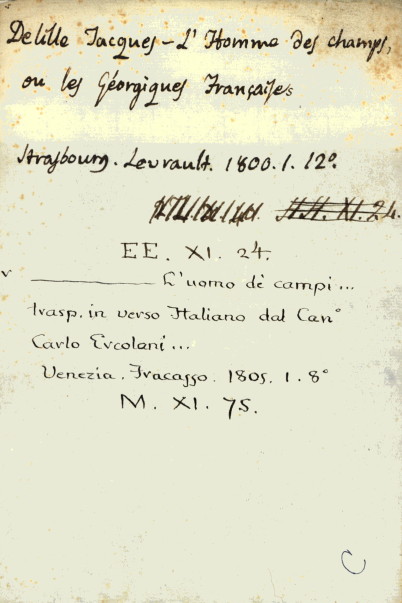 Delille Jacques - L'Homme des champs,
ou les Géorgiques Françaises
Strasbourg. Levrault. 1800. 1. 12º.
XI. 24.
EE. XI. 24.
v ———— L'uomo de' campi...
trasp. in verso Italiano dal Canº
Carlo Ercolani...
Venezia. Fracasso. 1805. 1. 8º
M. XI. 75.
C